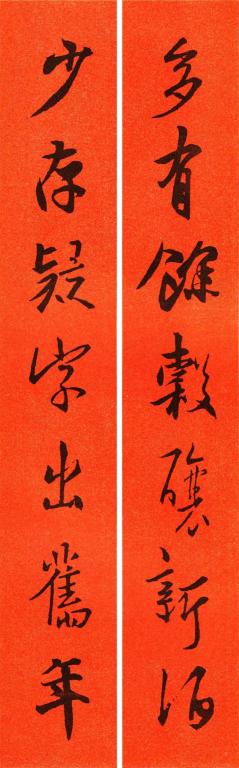 多有餘穀釀新酒
少存疑字出舊年